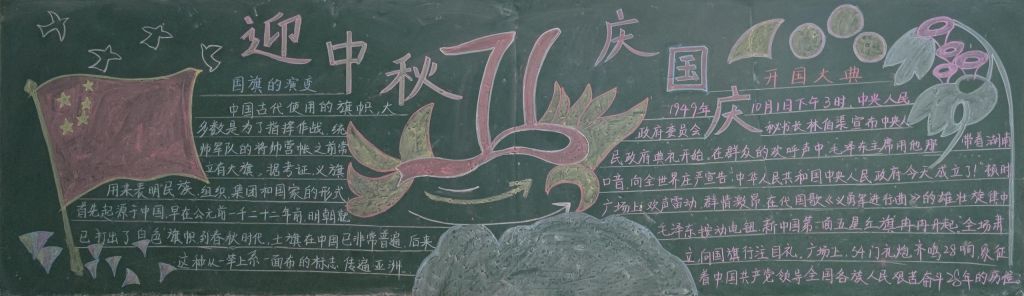 迎中秋 庆国庆
71
国旗的演变
中国古代使用的旗帜,大
多数是为了指挥作战,统
帅军队的将帅营帐之前常
立有大旗,据考证,义旗
用来表明民族、组织、集团和国家的形式
首先起源于中国,早在公元前一千二十二年前,明朝就
已制出了白色旗帜,到春秋时代,士旗在中国已非常普遍,后来
这种从一竿上系一面布的标志,传遍亚洲
开国大典
1949年10月1日下午3时,中央人民
政府委员会秘书长林伯渠宣布中央人
民政府典礼开始。在群众的欢呼声中,毛泽东主席用他那带着湖南
口音,向全世界庄严宣告:中华人民共和国中央人民政府今天成立了!顿时
广场上欢声雷动,群情激昂。在代国歌《义勇军进行曲》的雄壮旋律中
毛泽东按动电钮,新中国第一面五星红旗冉冉升起。全场肃
立,向国旗行注目礼。广场上,54门礼炮齐鸣28响,象征
着中国共产党领导全国各族人民艰苦奋斗28年的历程